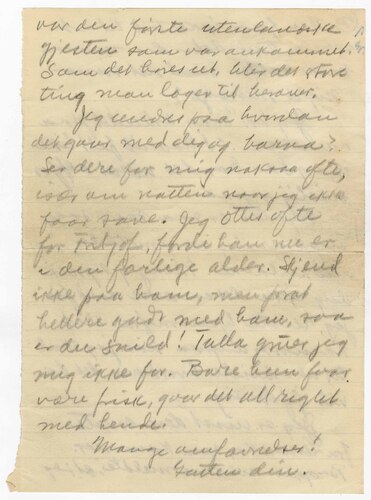 var den förste utenlandske
gjesten som var ankommet.
Som det höres ut, blir det store
ting man lager til herover.
Jeg undres paa hvordan
det gaar med dig og barna?
Ser dere for mig noksaa ofte,
især om natten naar jeg ikke
faar sove. Jeg ottes ofte
for Fritjof, fordi han nu er
i den farlige alder. Skjend
ikke paa ham, men prat
heller godt med ham, saa
er du snild! Tulla gruer jeg
mig ikke for. Bare hun faar
være frisk, gaar det all right
med hende.
Mange omfavnelser!
Gutten din.